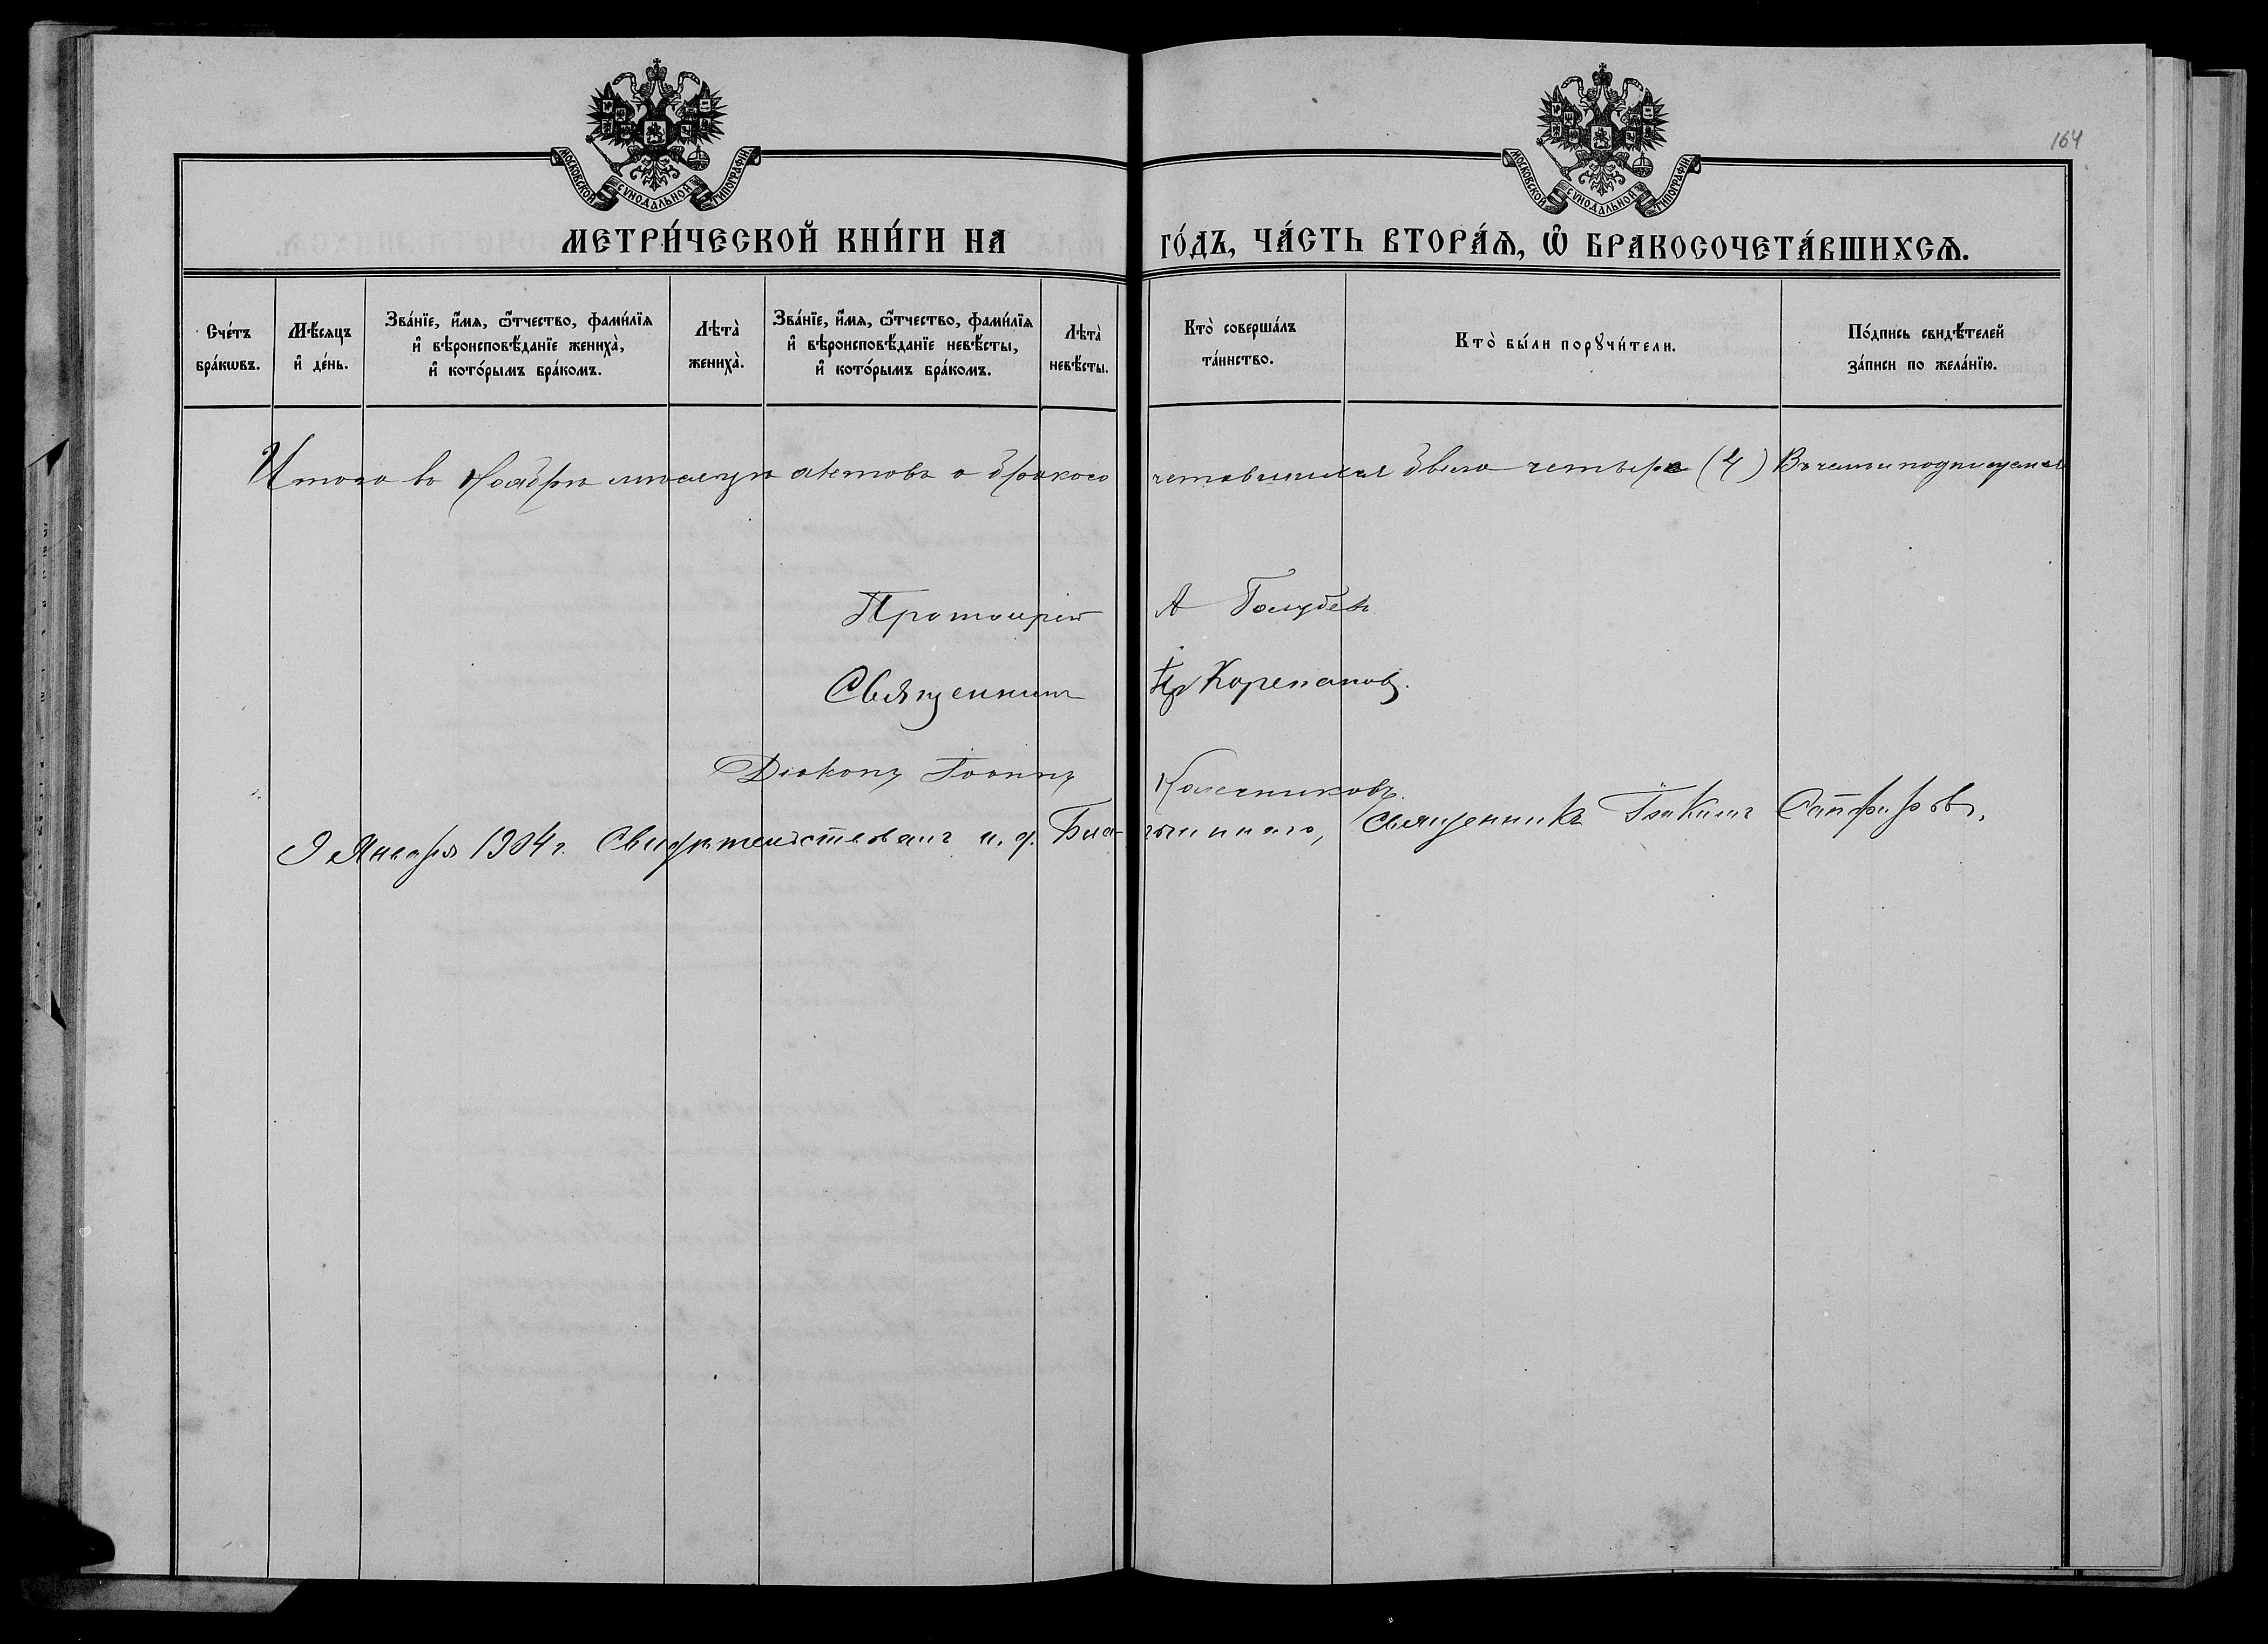 164
МОСКОВСКОЙ СѴНОДАЛЬНОЙ ТИПОГРАФІИ.
МОСКОВСКОЙ СѴНОДАЛЬНОЙ ТИПОГРАФІИ.
МЕТРИ́ЧЕСКОЙ КНИ́ГИ НА ГО́ДЪ, ЧА́СТЬ ВТОРА́Ѧ, Ѡ҆ БРАКОСОЧЕТА́ВШИХСѦ.
Сче́тъ бра́кѡвъ.
Мѣ́сяцъ и҆ де́нь.
Зва́нїе, и҆́мѧ, ѻ҆́тчество, фами́лїѧ и҆ вѣроисповѣ́данїе жениха̀, и҆ кото́рымъ бра́комъ.
Лѣта̀ жениха̀.
Зва́нїе, и҆́мѧ, ѻ҆́тчество, фами́лїѧ и҆ вѣроисповѣ́данїе невѣ́сты, и҆ кото́рымъ бра́комъ.
Лѣта̀ невѣ́сты.
Кто̀ соверша́лъ та́инство.
Кто̀ бы́ли порꙋчи́тели.
По́дпись свидѣ́телей за́писи по жела́нїю.
Итого въ Ноябрѣ мѣсяцѣ актовъ о бракосо четавшихся было четыре (4) Въ чемъ и подписуемся
Протоіерей А Голубев
Священник Корепановъ.
Діаконъ Іоаннъ Колесниковъ.
9 Января 1904 г. Свидѣтельствовалъ и. д. Благочиннаго, Священникъ Іоакимъ Сапфировъ.